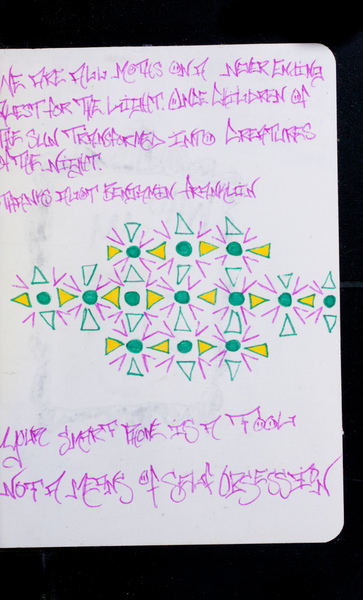 WE ARE ALL MOTHS ON A NEVER ENDING
QUEST FOR THE LIGHT. ONCE CHILDREN OF
THE SUN TRANSFORMED INTO CREATURES
OF THE NIGHT.
THANKS ALOT BENJAMIN FRANKLIN
YOUR SMART PHONE IS A TOOL
NOT A MEANS OF SELF OBSESSION